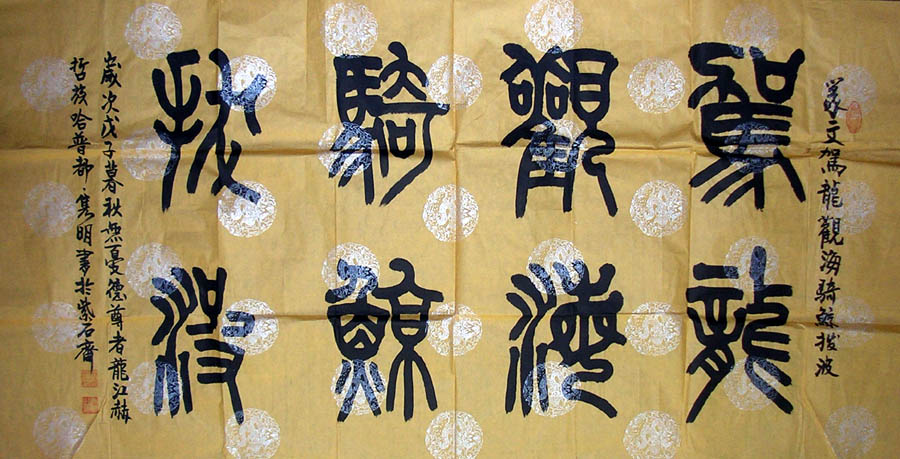 篆文駕龍觀海騎鯨拔波
駕龍
觀海
騎鯨
拔波
歲次戊子暮秋無憂德尊者龍江赫
哲族哈普都·雋明書於紫石齋